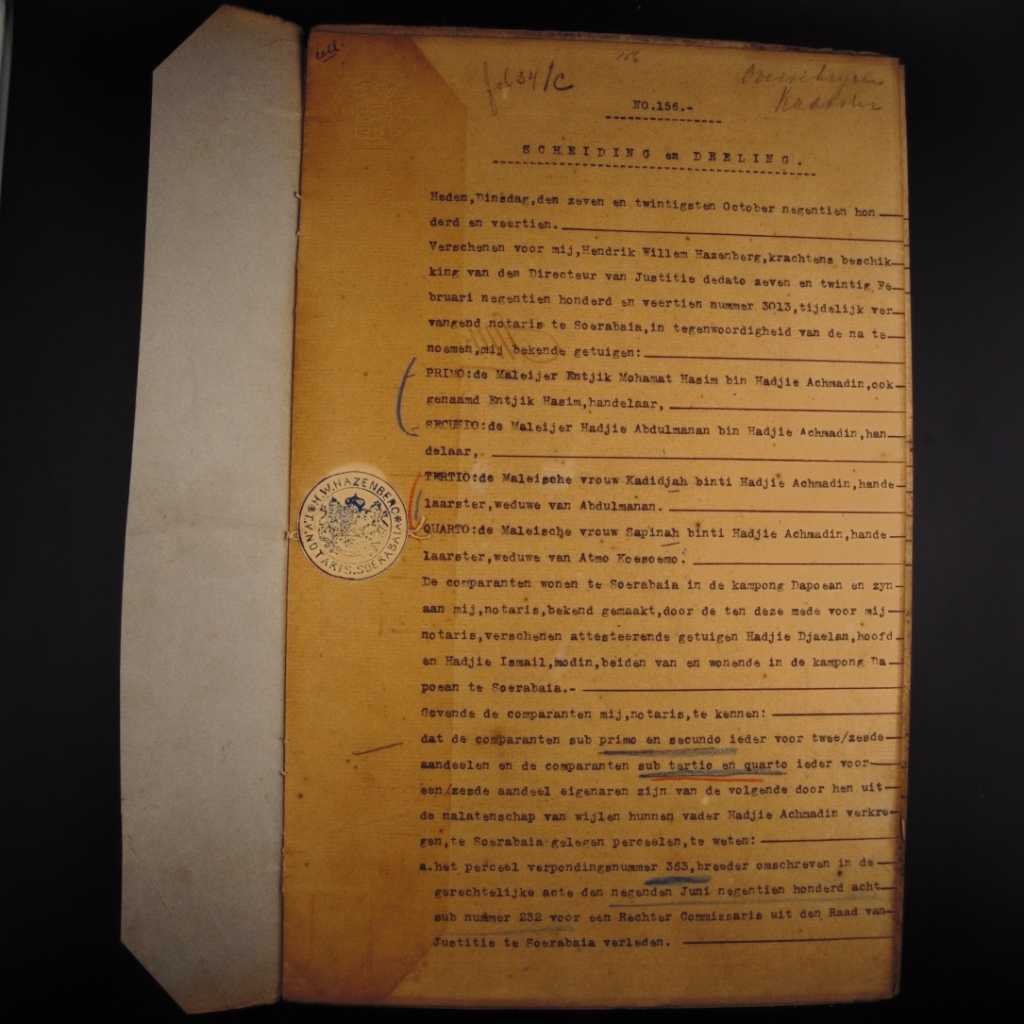 fol 34/C
156
Overschryven
Kadaster
NO.156.-
SCHEIDING en DEELING.
Heden,Dinsdag,den zeven en twintigsten October negentien hon
derd en veertien.
Verschenen voor mij,Hendrik Willem Hazenberg,krachtens beschik-
king van den Directeur van Justitie dedato zeven en twintig Fe-
bruari negentien honderd en veertien nummer 3013,tijdelijk ver-
vangend notaris te Soerabaia,in tegenwoordigheid van de na te-
noemen,mij bekende getuigen:
PRIMO:de Maleijer Entjik Mohamat Hasim bin Hadjie Achmadin,ook-
genaamd Entjik Hasim,handelaar,
SECUNDO:de Maleijer Hadjie Abdulmanan bin Hadjie Achmadin,han-
delaar,
TERTIO:de Maleische vrouw Kadidjah binti Hadjie Achmadin,hande-
laarster,weduwe van Abdulmanan.
QUARTO:de Maleische vrouw Sapinah binti Hadjie Achmadin,hande-
laarster,weduwe van Atmo Koesoemo.
De comparanten wonen te Soerabaia in de kampong Dapoean en zyn-
aan mij,notaris,bekend gemaakt,door de ten deze mede voor mij-
notaris,verschenen attesteerende getuigen Hadjie Djaelan,hoofd-
en Hadjie Ismail,modin,beiden van en wonende in de kampong Da-
poean te Soerabaia.-
Gevende de comparanten mij,notaris,te kennen:
dat de comparanten sub primo en secundo ieder voor twee/zesde-
aandeelen en de comparanten sub tertio en quarto ieder voor-
een/zesde aandeel eigenaren zijn van de volgende door hen uit-
de nalatenschap van wijlen hunnen vader Hadjie Achmadin verkre-
gen,te Soerabaia gelegen perceelen,te weten:
a.het perceel verpondingsnummer 363,breeder omschreven in de-
gerechtelijke acte den negenden Juni negentien honderd acht-
sub nummer 232 voor een Rechter Commissaris uit den Raad van-
Justitie te Soerabaia verleden.
H.W.HAZENBERG
NOTARIS.SOERABAIA